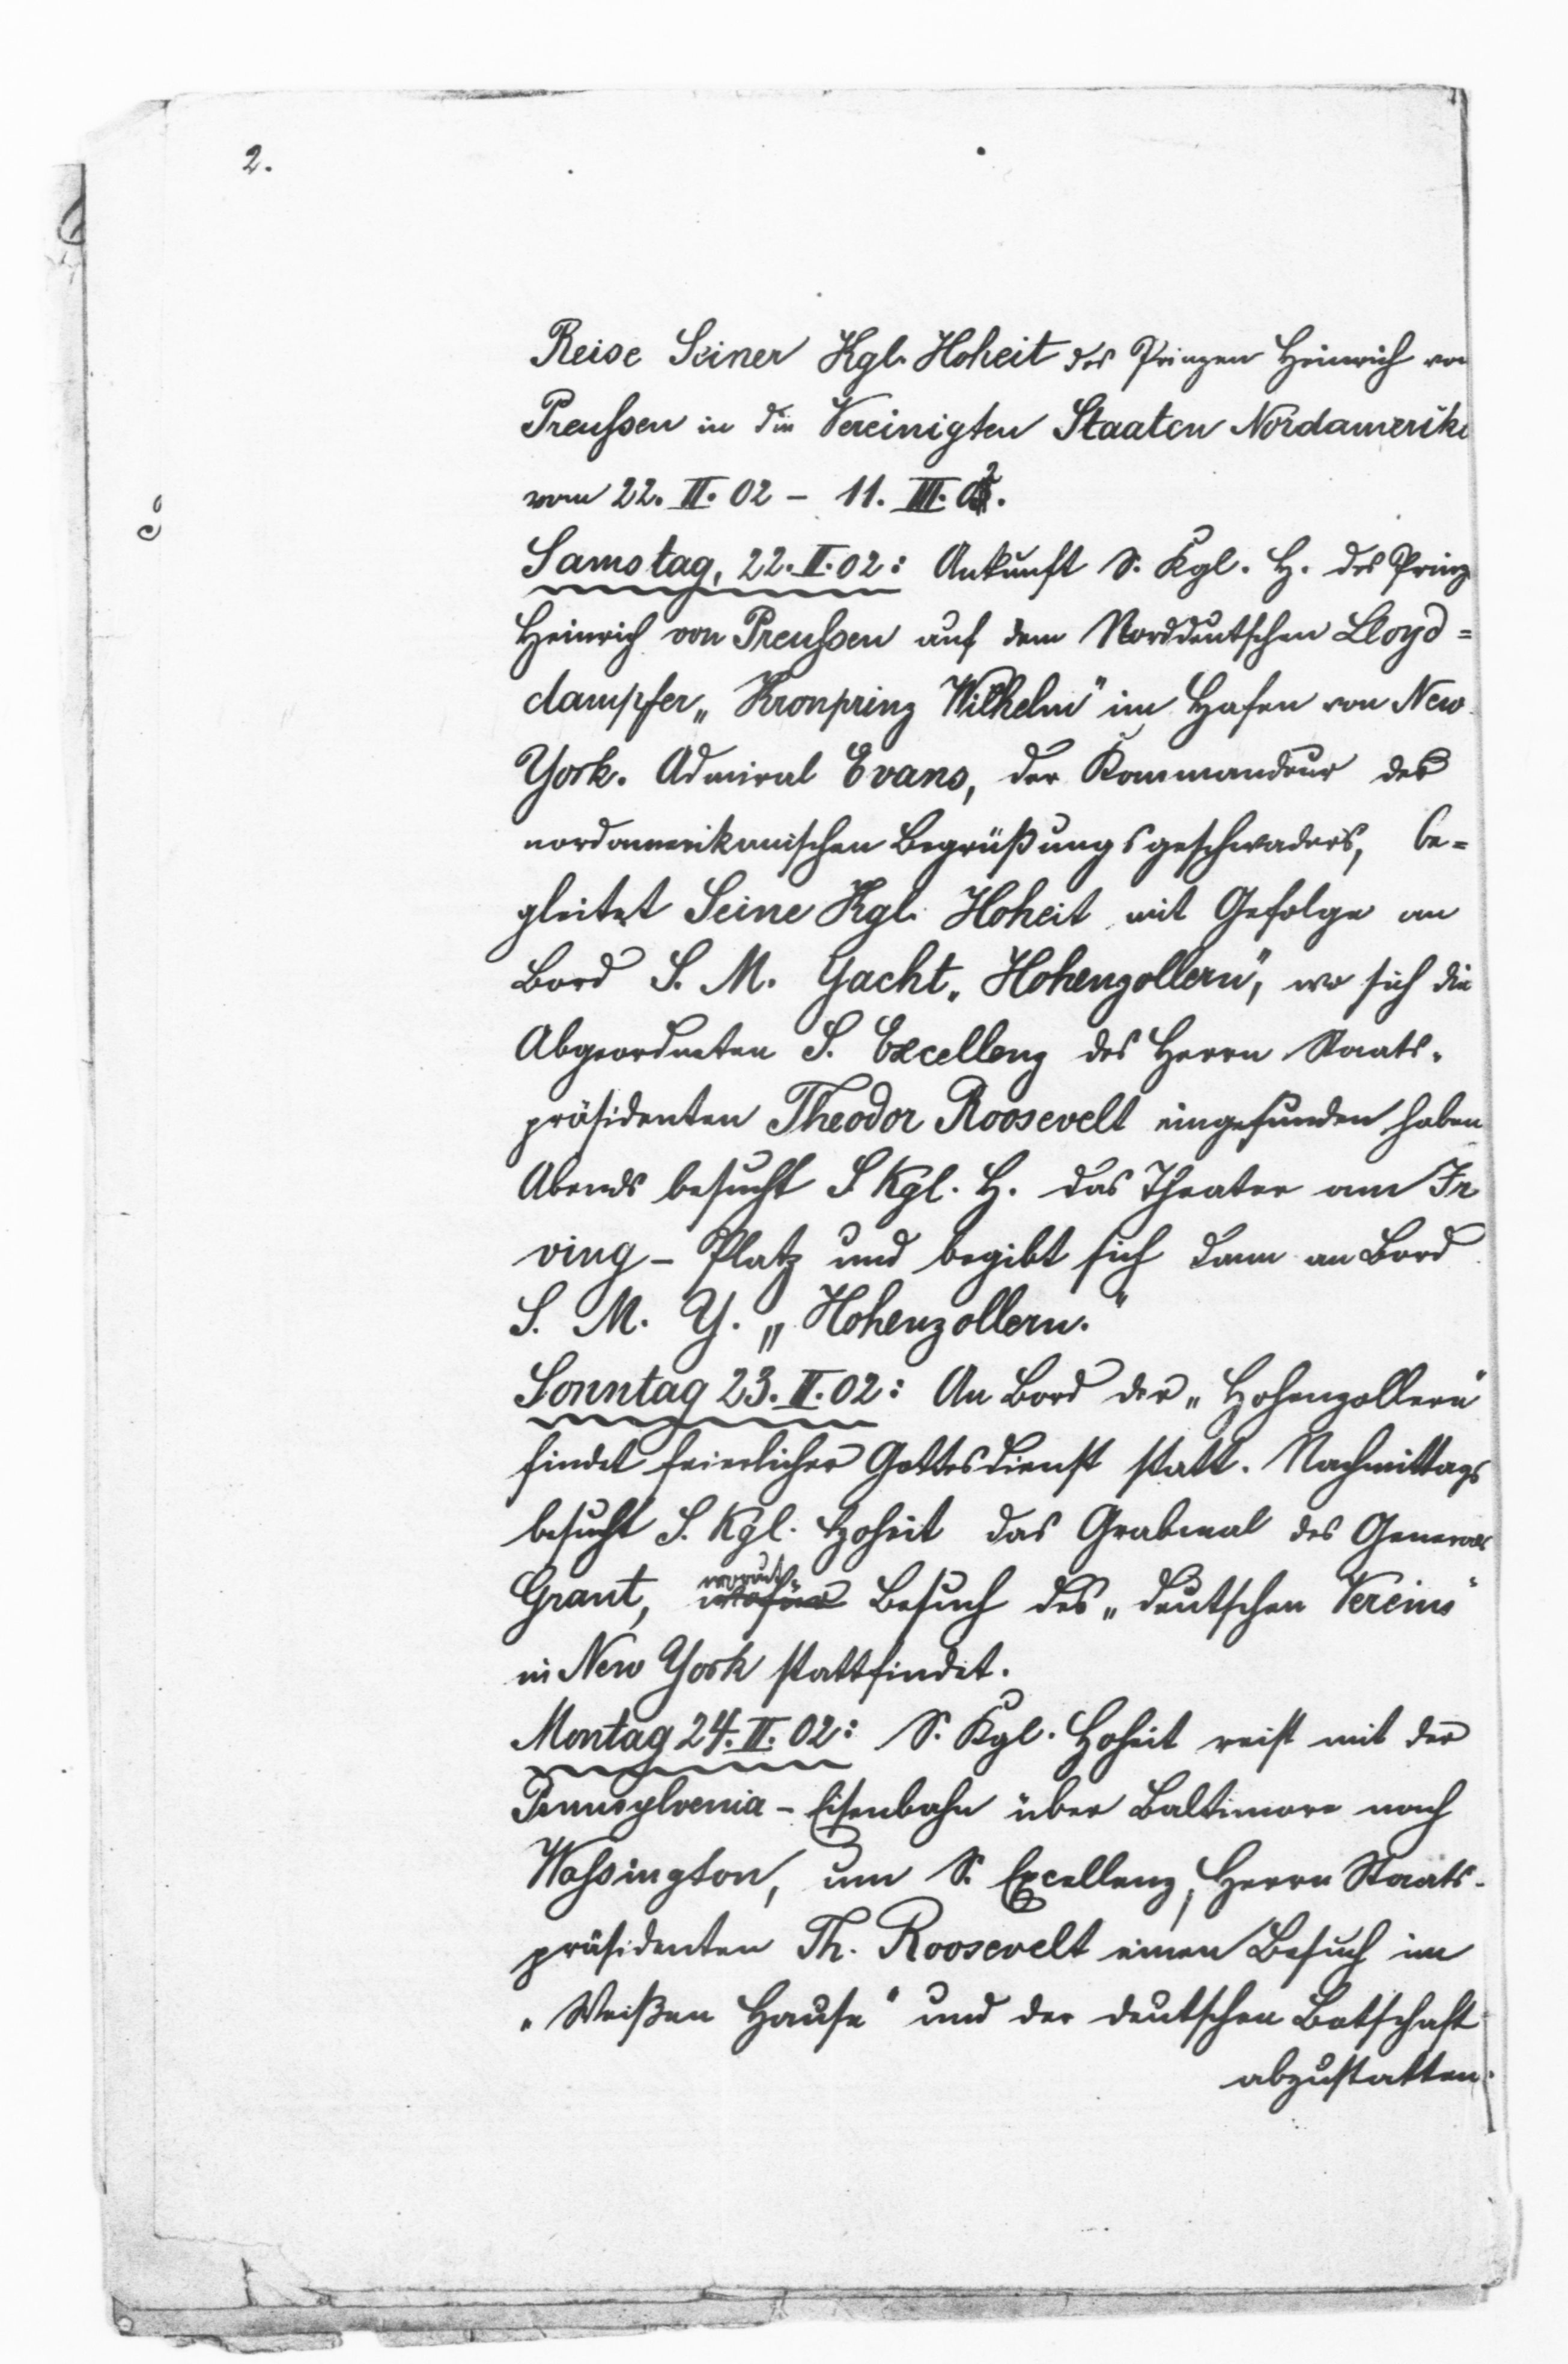 2.
Reise Seiner Kgl. Hoheit des Prinzen Heinrich von
Preussen in die Vereinigten Staaten Nordamerika
vom 22. II. 02 – 11. III. 02.
Samstag, 22. II. 02: Ankunft S. Kgl. H. des Prinz
Heinrich von Preussen auf dem Norddeutschen Lloyd=
dampfer „Kronprinz Wilhelm" im Hafen von New
York. Admiral Evans, der Kommandeur des
nordamerikanischen Begrüßungsgeschwaders, be=
gleitet Seine Kgl. Hoheit mit Gefolge an
Bord S. M. Yacht „Hohenzollern", wo sich die
Abgeordneten S. Excellenz des Herrn Staats-
präsidenten Theodor Roosevelt eingefunden haben
Abends besucht S. Kgl. H. das Theater am Ir
ving – Platz und begibt sich dann an Bord
S. M. Y. „Hohenzollern."
Sonntag 23. II. 02: An Bord der „Hohenzollern"
findet feierlicher Gottesdienst statt. Nachmittags
besucht S. Kgl. Hoheit das Grabmal des Generals
Grant, worauf Besuch des „deutschen Vereins"
in New York stattfindet.
Montag 24. II. 02: S. Kgl. Hoheit reist mit der
Pennsylvenia – Eisenbahn über Baltimore nach
Wassington, um S. Excellenz, Herrn Staats-
präsidenten Th. Roosevelt einen Besuch im
„Weißen Hause" und der deutschen Botschaft
abzustatten.